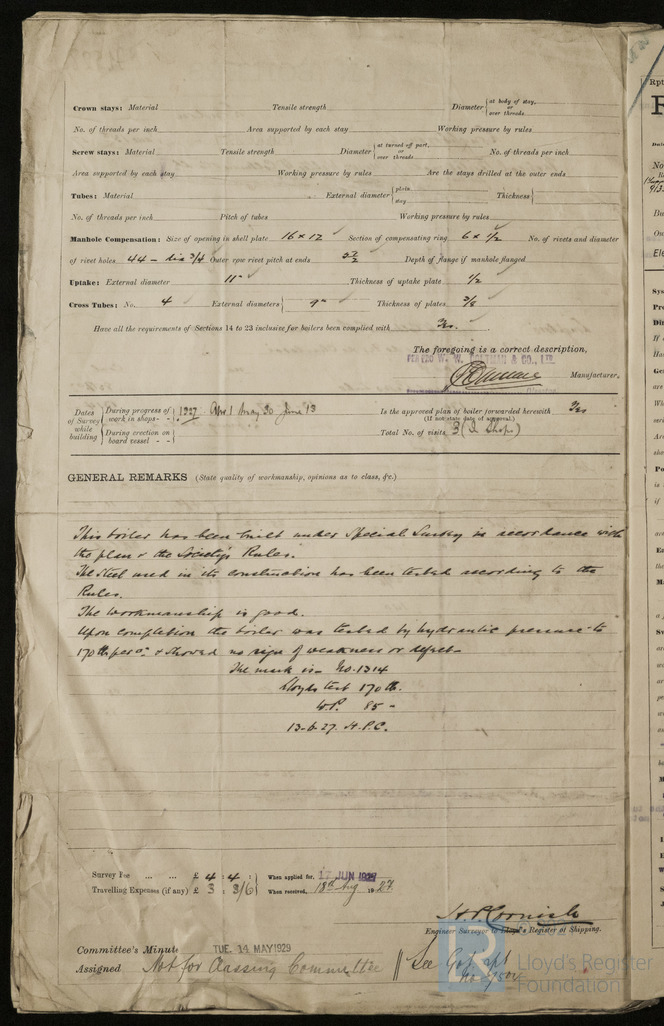 Crown stays: Material Tensile strength Diameter { at body of stay, or over threads
No. of threads per inch Area supported by each stay Working pressure by rules
Screw stays: Material Tensile strength Diameter { at turned off part, or over threads No. of threads per inch
Area supported by each stay Working pressure by rules Are the stays drilled at the outer ends
Tubes: Material External diameter { plain stay Thickness {
No. of threads per inch Pitch of tubes Working pressure by rules
Manhole Compensation: Size of opening in shell plate 16 x 12 Section of compensating ring 6 x 1/2 No. of rivets and diameter
of rivet holes 44 - dia 3/4 Outer row rivet pitch at ends Depth of flange if manhole flanged
Uptake: External diameter 11" Thickness of uptake plate 1/2
Cross Tubes: No. 4 External diameters { 9" Thickness of plates 3/8
Have all the requirements of Sections 14 to 23 inclusive for boilers been complied with Yes.
The foregoing is a correct description,
Manufacturer.
Dates of Survey while building { During progress of work in shops - - { 1927. Apr 1 May 30 June 13 Is the approved plan of boiler forwarded herewith Yes
(If not state date of approval.)
During erection on board vessel - - } Total No. of visits 3 (In Shops)
GENERAL REMARKS (State quality of workmanship, opinions as to class, &c.)
This boiler has been built under Special Survey in accordance with
the plan & the Society's Rules.
The Steel used in its construction has been tested according to the
Rules.
The workmanship is good.
Upon completion the boiler was tested by hydraulic pressure to
170 lb per □" & showed no sign of weakness or defect.
The mark is - No. 1314
Lloyds test 170 lb.
W.P. 85 -
13-6-27. H.P.C.
Survey Fee ... ... £ 4 : 4 : When applied for, 17 JUN 1927
Travelling Expenses (if any) £ 3 : 3/6 When received, 18th Aug 1927
H.P. Cornish
Engineer Surveyor to Lloyd's Register of Shipping.
Committee's Minute TUE. 14 MAY 1929
Assigned Not for Classing Committee // See
Lloyd's Register
Foundation